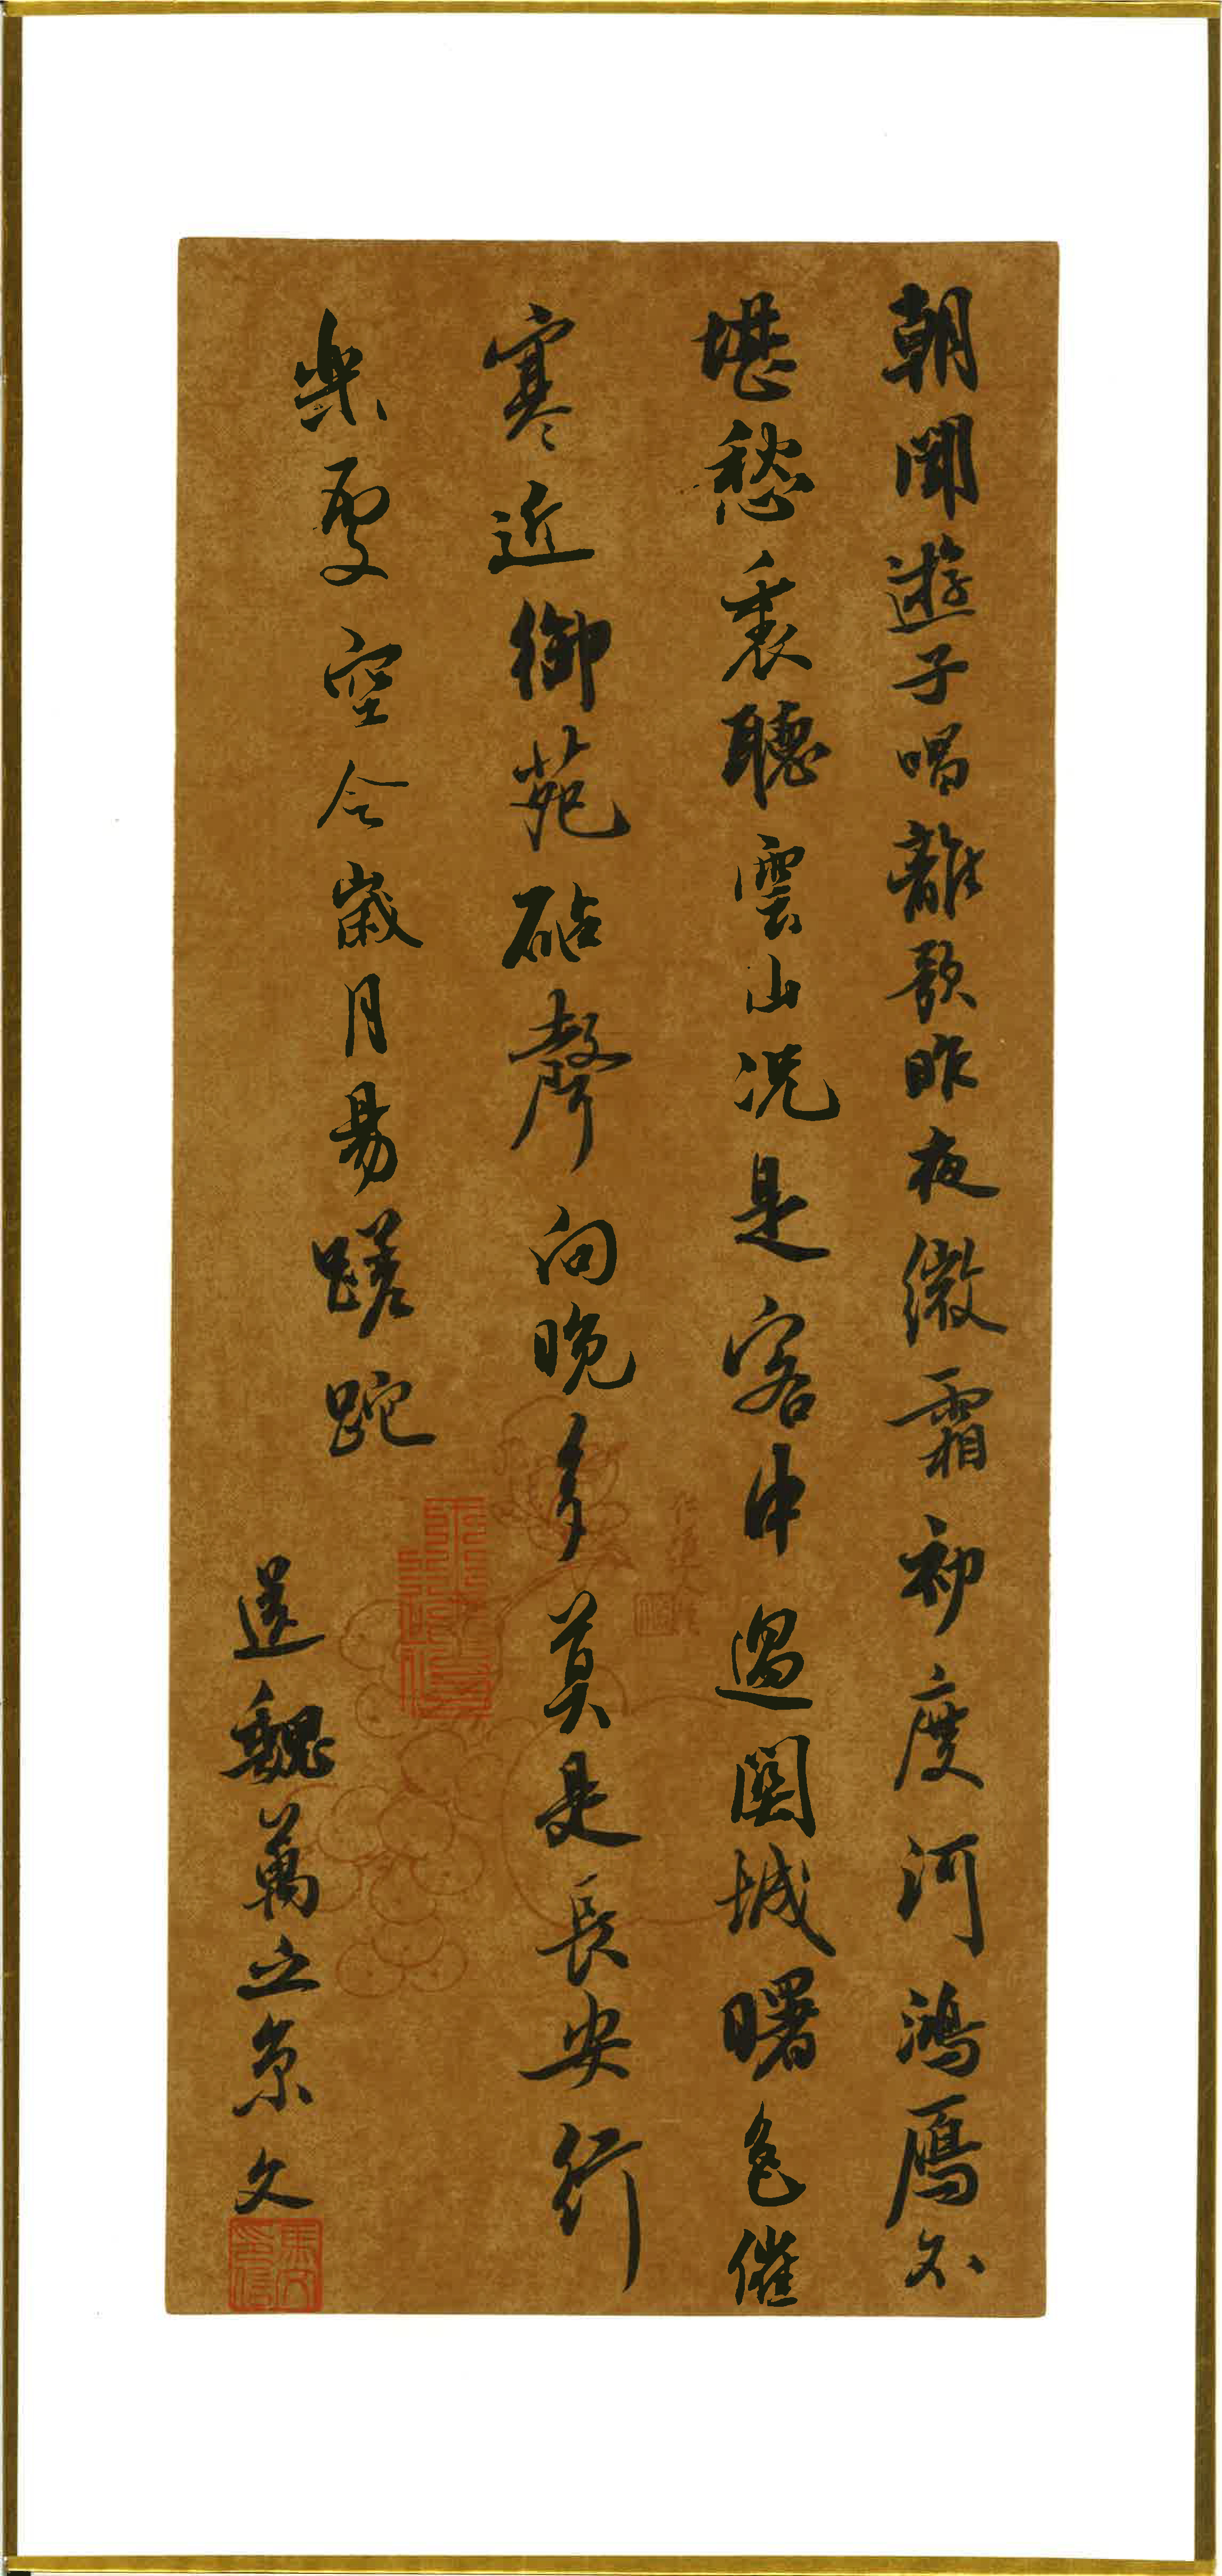 朝聞遊子唱離歌昨夜微霜初度河鴻鴈不
堪愁裏聽雲山况是客中過關城曙色催
寒近御苑砧聲向晚多莫是長安行
樂處空令歲月易蹉跎
送魏萬之京文